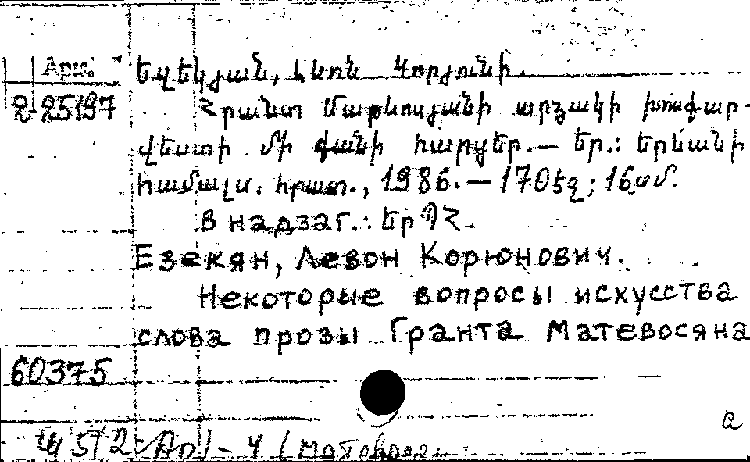 Արմ.
2-25197
Եզեկյան, Լևոն Կորյունի.
Հրանտ Մաթևոսյանի արձակի խոսքար-
վեստի մի քանի հարցեր.— Եր.: Երևանի
համալս. հրատ., 1986.— 170 էջ; 16սմ.
В надзаг.: ԵրՊՀ.
Езекян, Левон Корюнович.
Некоторые вопросы искусства
слова прозы Гранта Матевосяна
60375
а